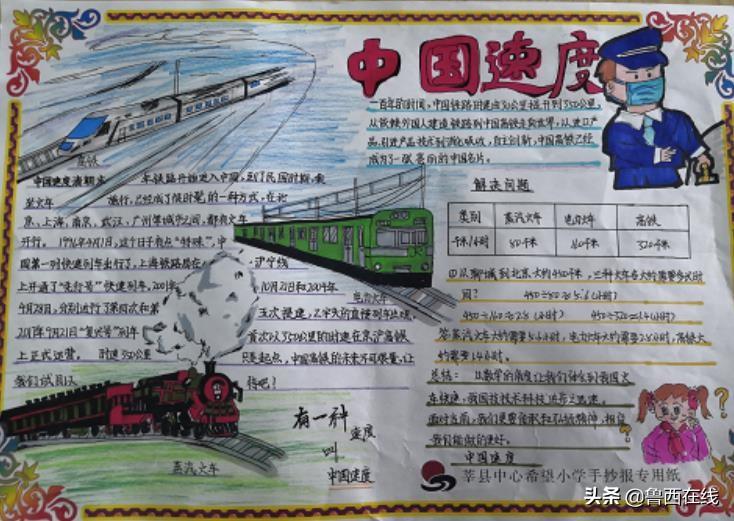 中国速度
一百年的时间，中国铁路时速由30公里提升到350公里，
从依赖外国人建造铁路到中国高铁走向世界，从进口产
品、引进产品技术到消化吸收，自主创新，中国高铁已经
成为了一张亮丽的中国名片。
高铁
中国速度清朝末年铁路开始进入中国，到了民国时期，乘
坐火车旅行，已经成了很时髦的一种方式，在北
京、上海、南京、武汉、广州等城市之间，都有火车
开行。
中
国第一对快速列车出行了，上海铁路局在沪宁线
上开通了“先行号”快速列车，2001年10月21日和2004年
电力火车
2017年9月21日“复兴号”列车首次以350公里的时速在京沪高铁
上正式运营。时速350公里只是起点，中国高铁的未来不可限量，让
我们拭目以待吧！
蒸汽火车
有一种
速度
叫
中国速度
解决问题
类别 蒸汽火车 电力火车 高铁
千米/小时 80千米 160千米 320千米
①从聊城到北京大约450千米，三种火车各大约需要多少时
间？ 450÷80≈5.6(小时)
450÷160≈2.8(小时) 450÷320≈1.4(小时)
答：蒸汽火车大约需要5.6小时，电力火车大约需要2.8小时，高铁大
约需要1.4小时。
总结：从数学的角度让我们体会到我国火
车快速，我国技术科技
面对当前，我们更要传承和
我们能做的更好。
中国速度
莘县中心希望小学手抄报专用纸
头条@鲁西在线